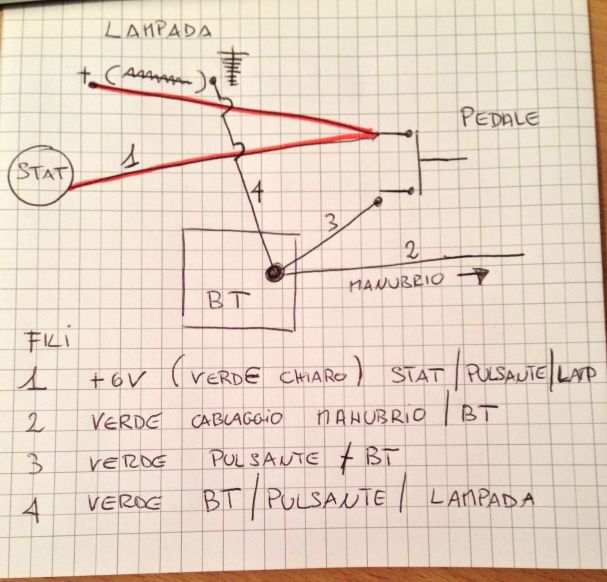 LAMPADA
+
PEDALE
1
STAT
4
3
2
MANUBRIO
BT
FILI
1 +6V (VERDE CHIARO) STAT/PULSANTE/LAMP
2 VERDE CABLAGGIO MANUBRIO / BT
3 VERDE PULSANTE / BT
4 VERDE BT/PULSANTE/ LAMPADA